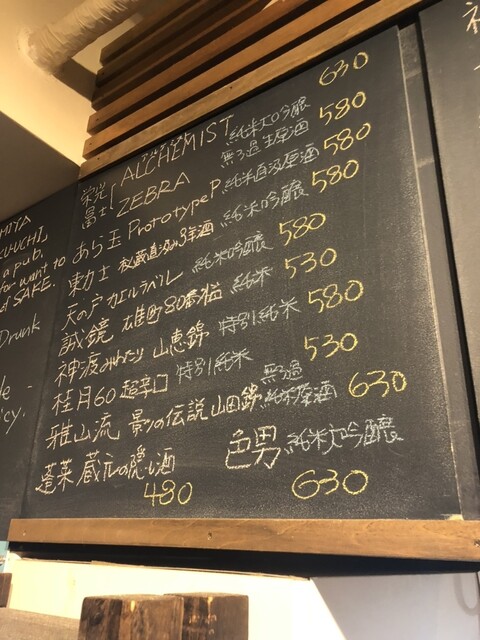 栄光冨士 ALCHEMIST 純米大吟醸 630
ZEBRA 無ろ過生原酒 580
あら玉 Prototype P 純米直汲原酒 580
東力士 秘蔵直汲み3年酒 純米吟醸 580
天の戸 カエルラベル 純米吟醸 580
誠鏡 雄町80番 純米 530
神渡 みわたり 山恵錦 特別純米 580
桂月60 超辛口 特別純米 530
雅山流 影の伝説 山田錦 無ろ過純米原酒 630
蓬莱 蔵元の隠し酒 480
色男 純米大吟醸 630
MIYA
KU-UCHI
a pub,
for want to
of SAKE.
Drunk
cy.